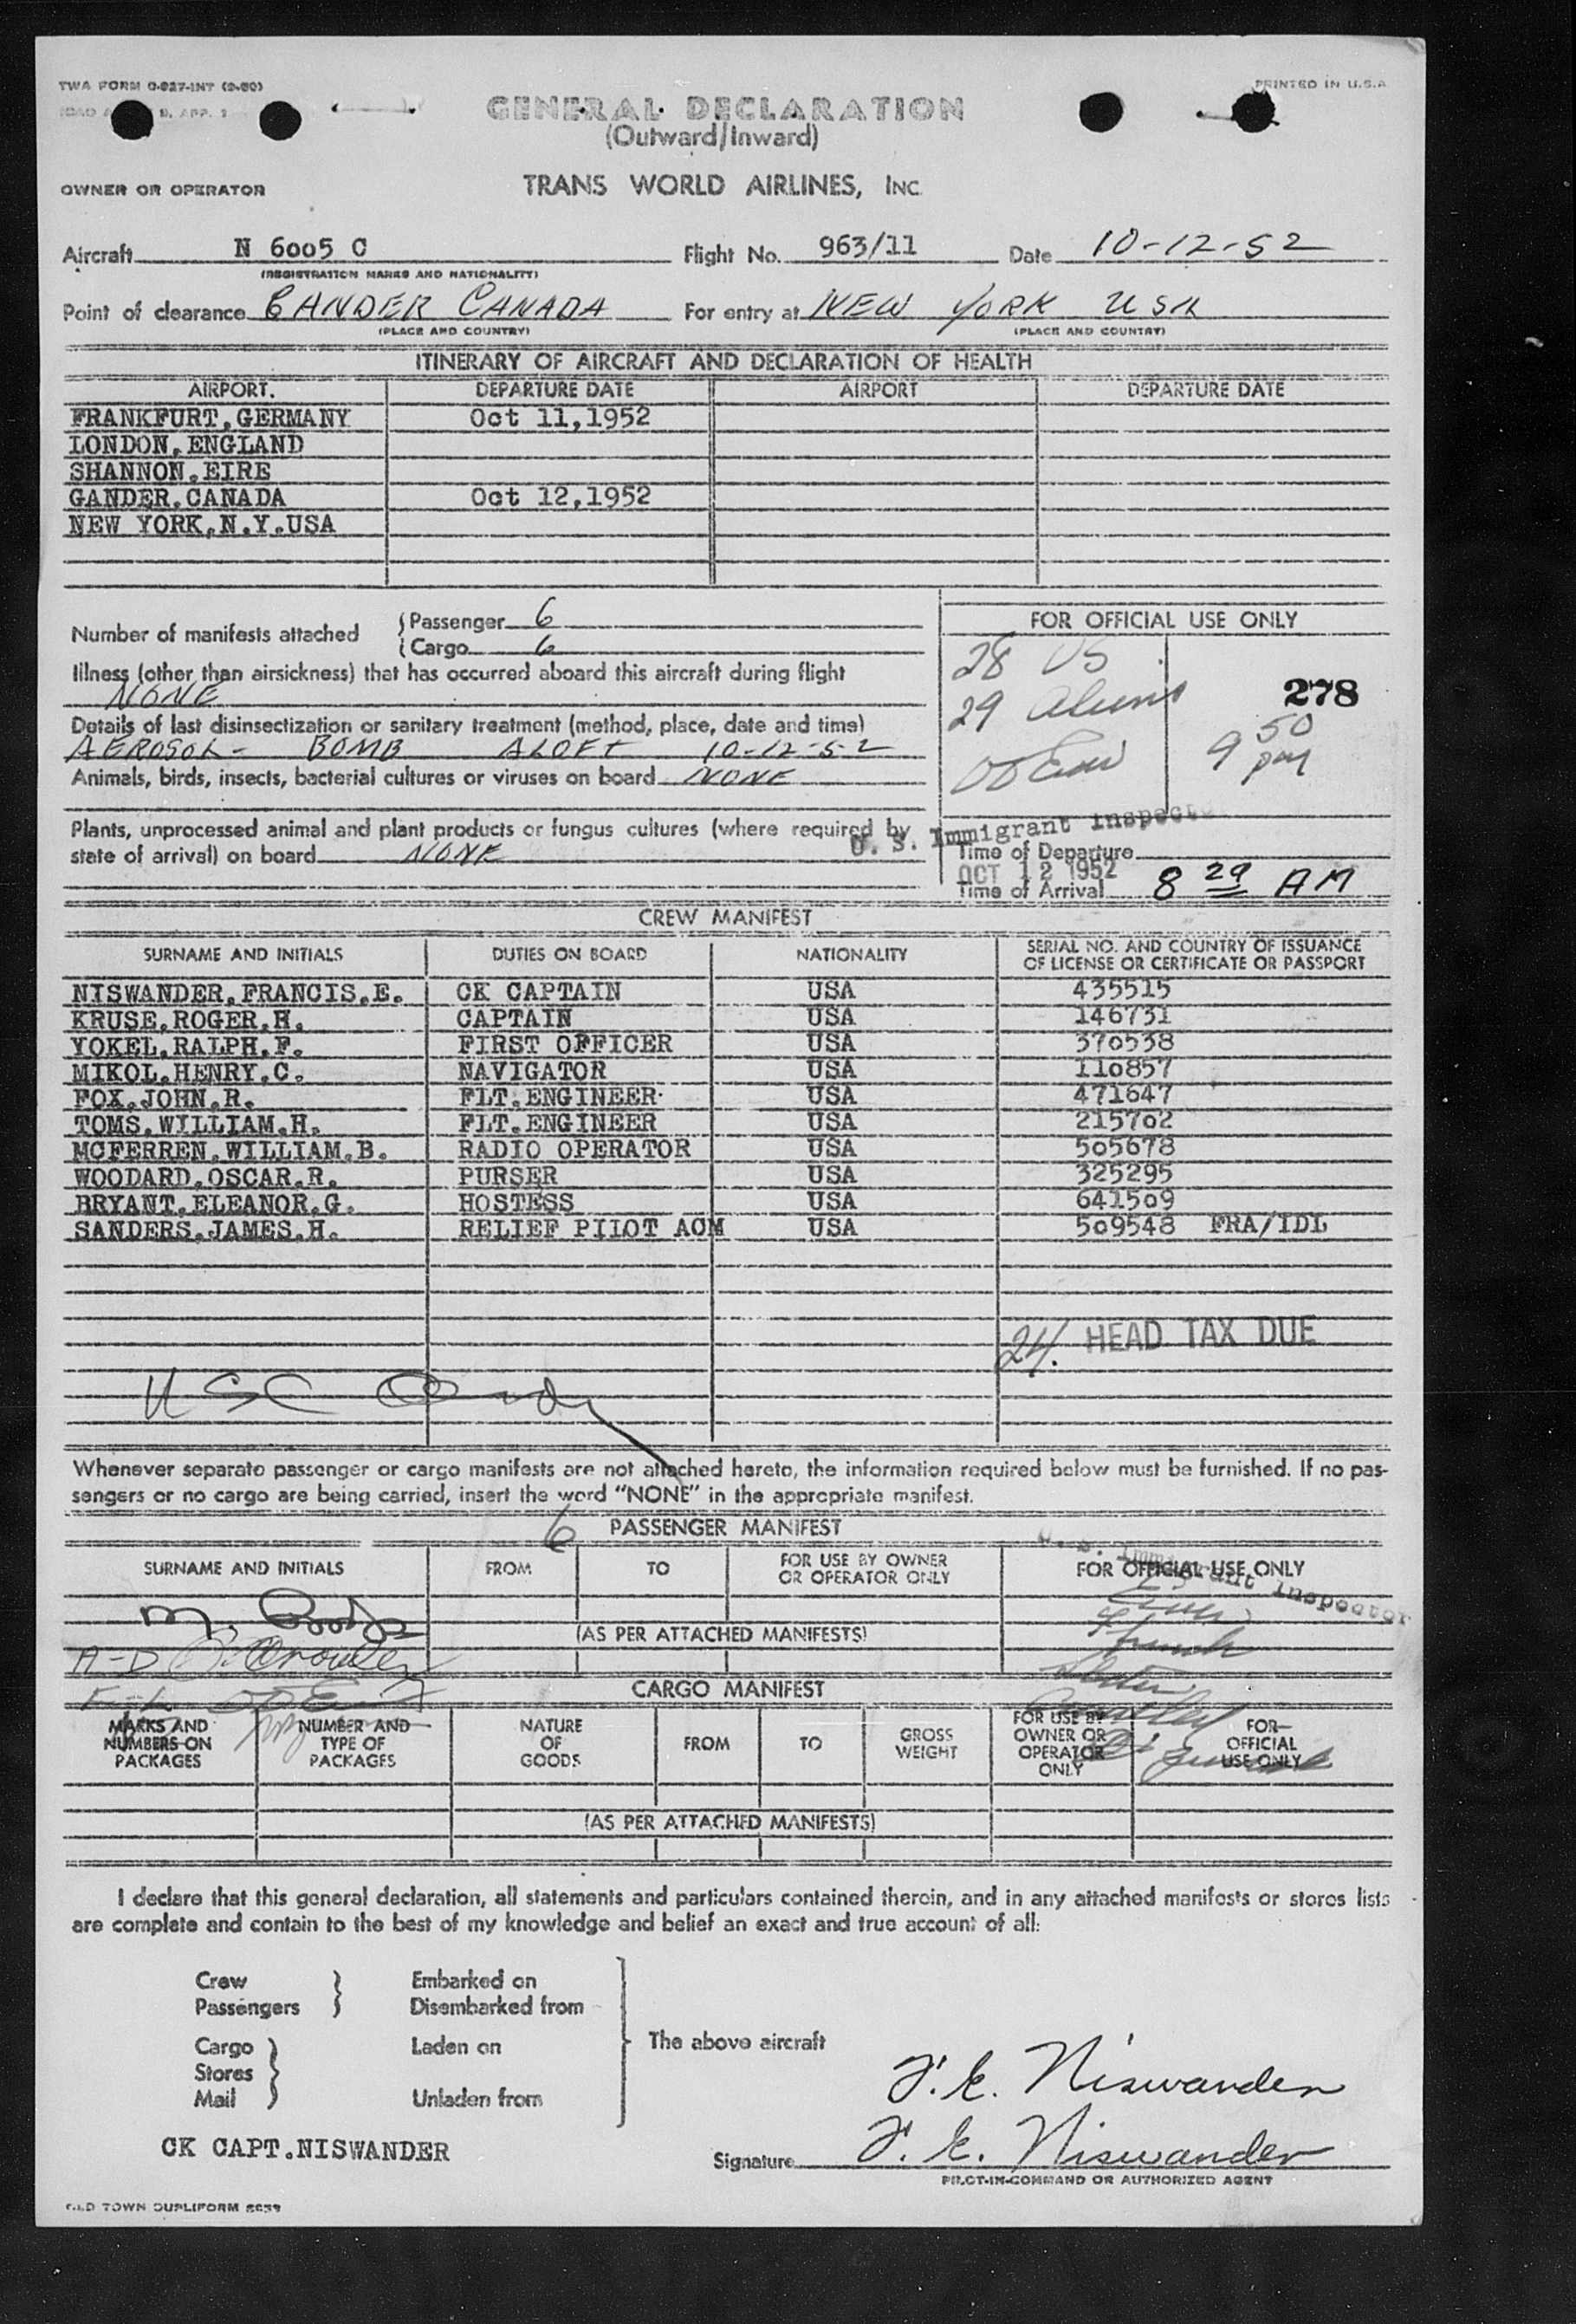 TWA FORM O-827-INT (9-50)
PRINTED IN U.S.A.
GENERAL DECLARATION
(Outward/Inward)
OWNER OR OPERATOR TRANS WORLD AIRLINES, INC.
Aircraft N 6005 C Flight No. 963/11 Date 10-12-52
(REGISTRATION MARKS AND NATIONALITY)
Point of clearance GANDER CANADA For entry at NEW YORK USA
(PLACE AND COUNTRY) (PLACE AND COUNTRY)
ITINERARY OF AIRCRAFT AND DECLARATION OF HEALTH
AIRPORT. DEPARTURE DATE AIRPORT DEPARTURE DATE
FRANKFURT,GERMANY Oct 11,1952
LONDON,ENGLAND
SHANNON,EIRE
GANDER,CANADA Oct 12,1952
NEW YORK,N.Y.USA
Number of manifests attached { Passenger 6
{ Cargo 6
FOR OFFICIAL USE ONLY
28 US
29 Aliens
278
9 50 pm
Illness (other than airsickness) that has occurred aboard this aircraft during flight
NONE
Details of last disinsectization or sanitary treatment (method, place, date and time)
AEROSOL- BOMB ALOFT 10-12-52
Animals, birds, insects, bacterial cultures or viruses on board NONE
Plants, unprocessed animal and plant products or fungus cultures (where required by
state of arrival) on board NONE
U. S. Immigrant Inspector
Time of Departure
OCT 12 1952
Time of Arrival 8 29 AM
CREW MANIFEST
SURNAME AND INITIALS DUTIES ON BOARD NATIONALITY SERIAL NO. AND COUNTRY OF ISSUANCE
OF LICENSE OR CERTIFICATE OR PASSPORT
NISWANDER,FRANCIS.E. CK CAPTAIN USA 435515
KRUSE,ROGER.H. CAPTAIN USA 146731
YOKEL,RALPH.F. FIRST OFFICER USA 370538
MIKOL,HENRY.C. NAVIGATOR USA 110857
FOX,JOHN.R. FLT.ENGINEER USA 471647
TOMS,WILLIAM.H. FLT.ENGINEER USA 215702
MCFERREN,WILLIAM.B. RADIO OPERATOR USA 505678
WOODARD,OSCAR.R. PURSER USA 325295
BRYANT,ELEANOR.G. HOSTESS USA 641509
SANDERS,JAMES.H. RELIEF PILOT ACM USA 509548 FRA/IDL
24. HEAD TAX DUE
USC
Whenever separate passenger or cargo manifests are not attached hereto, the information required below must be furnished. If no pas-
sengers or no cargo are being carried, insert the word "NONE" in the appropriate manifest.
6 PASSENGER MANIFEST
SURNAME AND INITIALS FROM TO FOR USE BY OWNER
OR OPERATOR ONLY
FOR OFFICIAL USE ONLY
U. S. Immigrant Inspector
(AS PER ATTACHED MANIFESTS)
A-D
CARGO MANIFEST
MARKS AND
NUMBERS ON
PACKAGES
NUMBER AND
TYPE OF
PACKAGES
NATURE
OF
GOODS
FROM
TO
GROSS
WEIGHT
FOR USE BY
OWNER OR
OPERATOR
ONLY
FOR
OFFICIAL
USE ONLY
(AS PER ATTACHED MANIFESTS)
I declare that this general declaration, all statements and particulars contained therein, and in any attached manifests or stores lists
are complete and contain to the best of my knowledge and belief an exact and true account of all:
Crew Embarked on
Passengers Disembarked from
Cargo Laden on The above aircraft
Stores
Mail Unladen from
F. E. Niswander
CK CAPT.NISWANDER
Signature F. E. Niswander
PILOT-IN-COMMAND OR AUTHORIZED AGENT
OLD TOWN DUPLIFORM